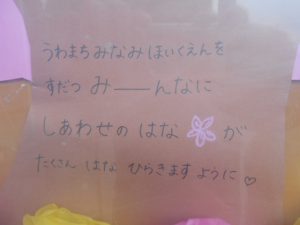 うわまち みなみ ほいくえんを
すだつ み――んなに
しあわせの はな が
たくさん はな ひらきます ように♡